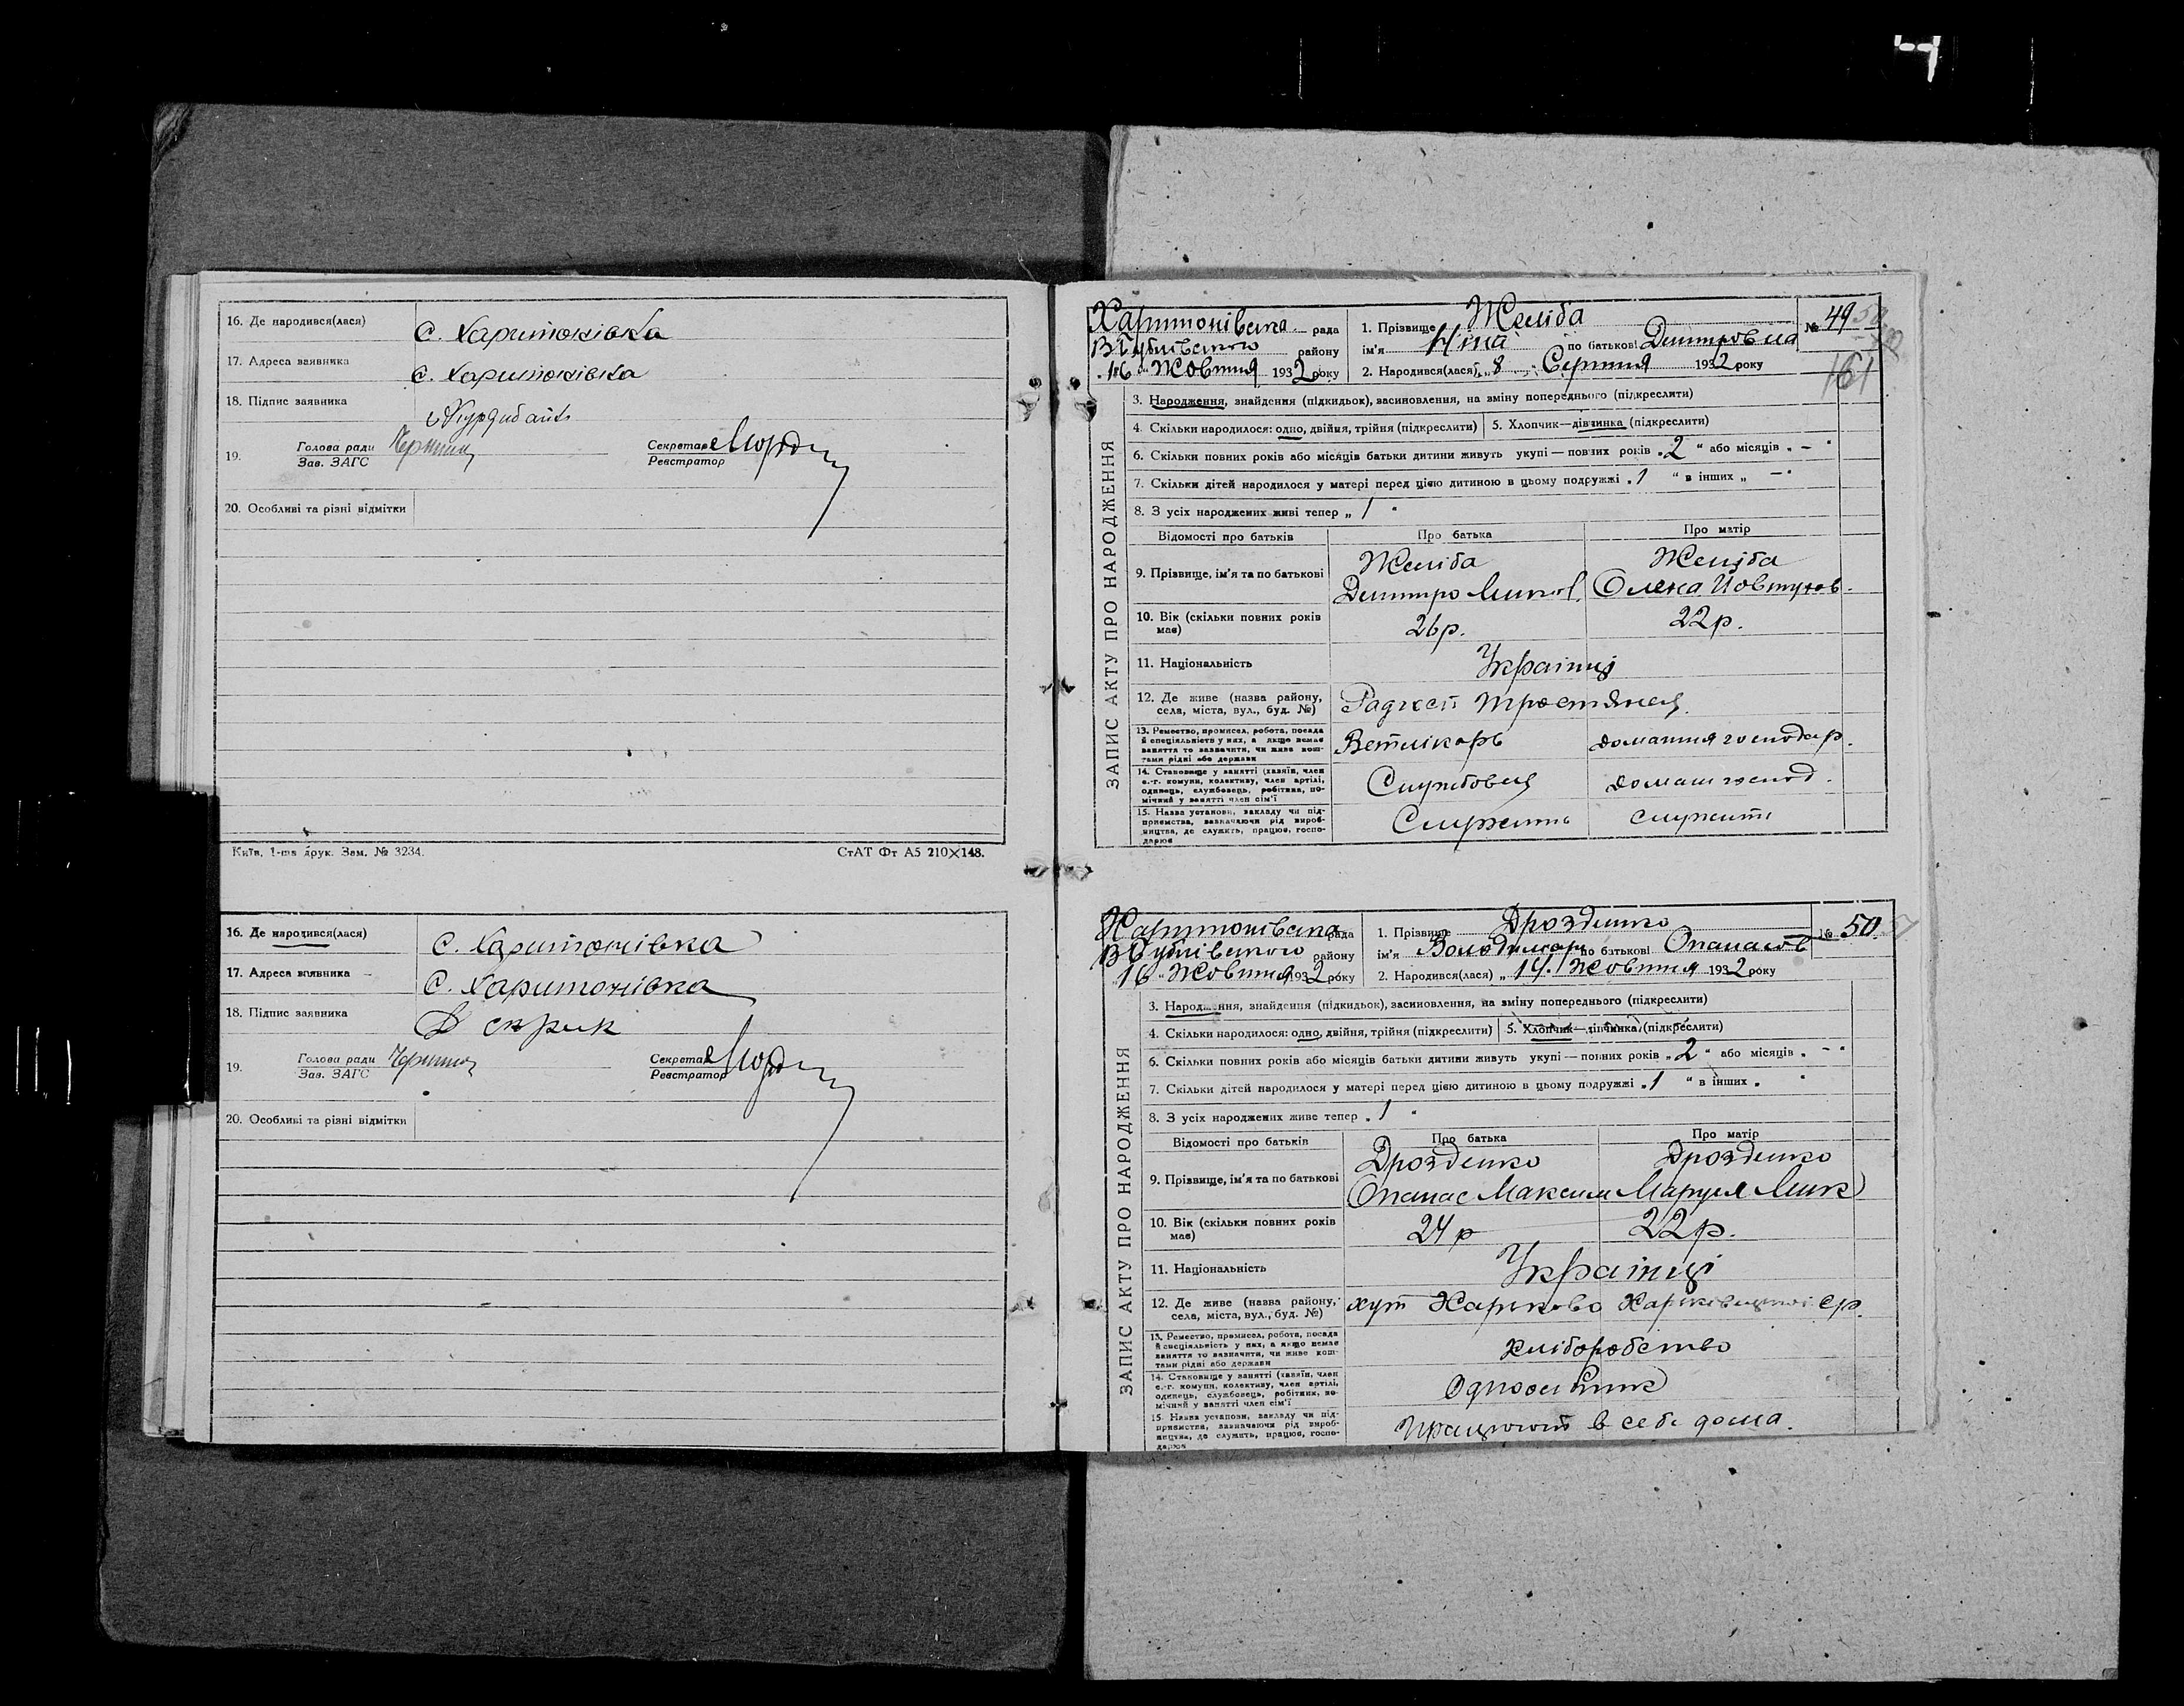 16. Де народився(лася) с. Харитонівка
17. Адреса заявника с. Харитонівка
18. Підпис заявника
19. Голова ради Зав. ЗАГС Секретар Реєстратор
20. Особливі та різні відмітки
Київ, 1-ша друк. Зам. № 3234. СтАТ Фт А5 210×148.
16. Де народився(лася) с. Харитонівка
17. Адреса заявника с. Харитонівка
18. Підпис заявника
19. Голова ради Зав. ЗАГС Секретар Реєстратор
20. Особливі та різні відмітки
ЗАПИС АКТУ ПРО НАРОДЖЕННЯ
Харитонівська рада 1. Прізвище Желіба № 49
району ім'я Ніна по батькові Дмитровна
16 Жовтня 1932 року 2. Народився(лася) „ 8 „ Серпня 1932 року
161
3. Народження, знайдення (підкидьок), засиновлення, на зміну попереднього (підкреслити)
4. Скільки народилося: одно, двійня, трійня (підкреслити) 5. Хлопчик—дівчинка (підкреслити)
6. Скільки повних років або місяців батьки дитини живуть укупі — повних років „ 2 “ або місяців „ — “
7. Скільки дітей народилося у матері перед цією дитиною в цьому подружжі „ 1 “ в інших „ — “
8. З усіх народжених живі тепер „ 1 “
Відомості про батьків Про батька Про матір
9. Прізвище, ім'я та по батькові Желіба Желіба
Дмитро Олена
10. Вік (скільки повних років має) 26 р. 22 р.
11. Національність Українці
12. Де живе (назва району, села, міста, вул., буд. №) Радгосп Тростянец
13. Ремество, промисел, робота, посада й спеціяльність у них, а якщо немає заняття то зазначити, чи живе коштами рідні або держави Ветлікарь домашня господар.
14. Становище у занятті (хазяїн, член с.-г. комуни, колективу, член артілі, одинець, службовець, робітник, помічний у занятті член сім'ї Службовец домаш господ.
15. Назва установи, закладу чи підприємства, зазначаючи рід виробництва, де служить, працює, господарює Служить служить
ЗАПИС АКТУ ПРО НАРОДЖЕННЯ
Харитонівська рада 1. Прізвище Дрозденко № 50
району ім'я Володимир по батькові Опанасов
16 Жовтня 1932 року 2. Народився(лася) „ 14. Жовтня 1932 року
3. Народження, знайдення (підкидьок), засиновлення, на зміну попереднього (підкреслити)
4. Скільки народилося: одно, двійня, трійня (підкреслити) 5. Хлопчик—дівчинка (підкреслити)
6. Скільки повних років або місяців батьки дитини живуть укупі — повних років „ 2 “ або місяців „ — “
7. Скільки дітей народилося у матері перед цією дитиною в цьому подружжі „ 1 “ в інших „ “
8. З усіх народжених живе тепер „ 1 “
Відомості про батьків Про батька Про матір
9. Прізвище, ім'я та по батькові Дрозденко Дрозденко
Опанас Максим Маруся Мик
10. Вік (скільки повних років має) 24 р 22 р.
11. Національність Українці
12. Де живе (назва району, села, міста, вул., буд. №) хут Харьково
13. Ремество, промисел, робота, посада й спеціяльність у них, а якщо немає заняття то зазначити, чи живе коштами рідні або держави хліборобство
14. Становище у занятті (хазяїн, член с.-г. комуни, колективу, член артілі, одинець, службовець, робітник, помічний у занятті член сім'ї Одноосібник
15. Назва установи, закладу чи підприємства, зазначаючи рід виробництва, де служить, працює, господарює Працюют в себе дома.